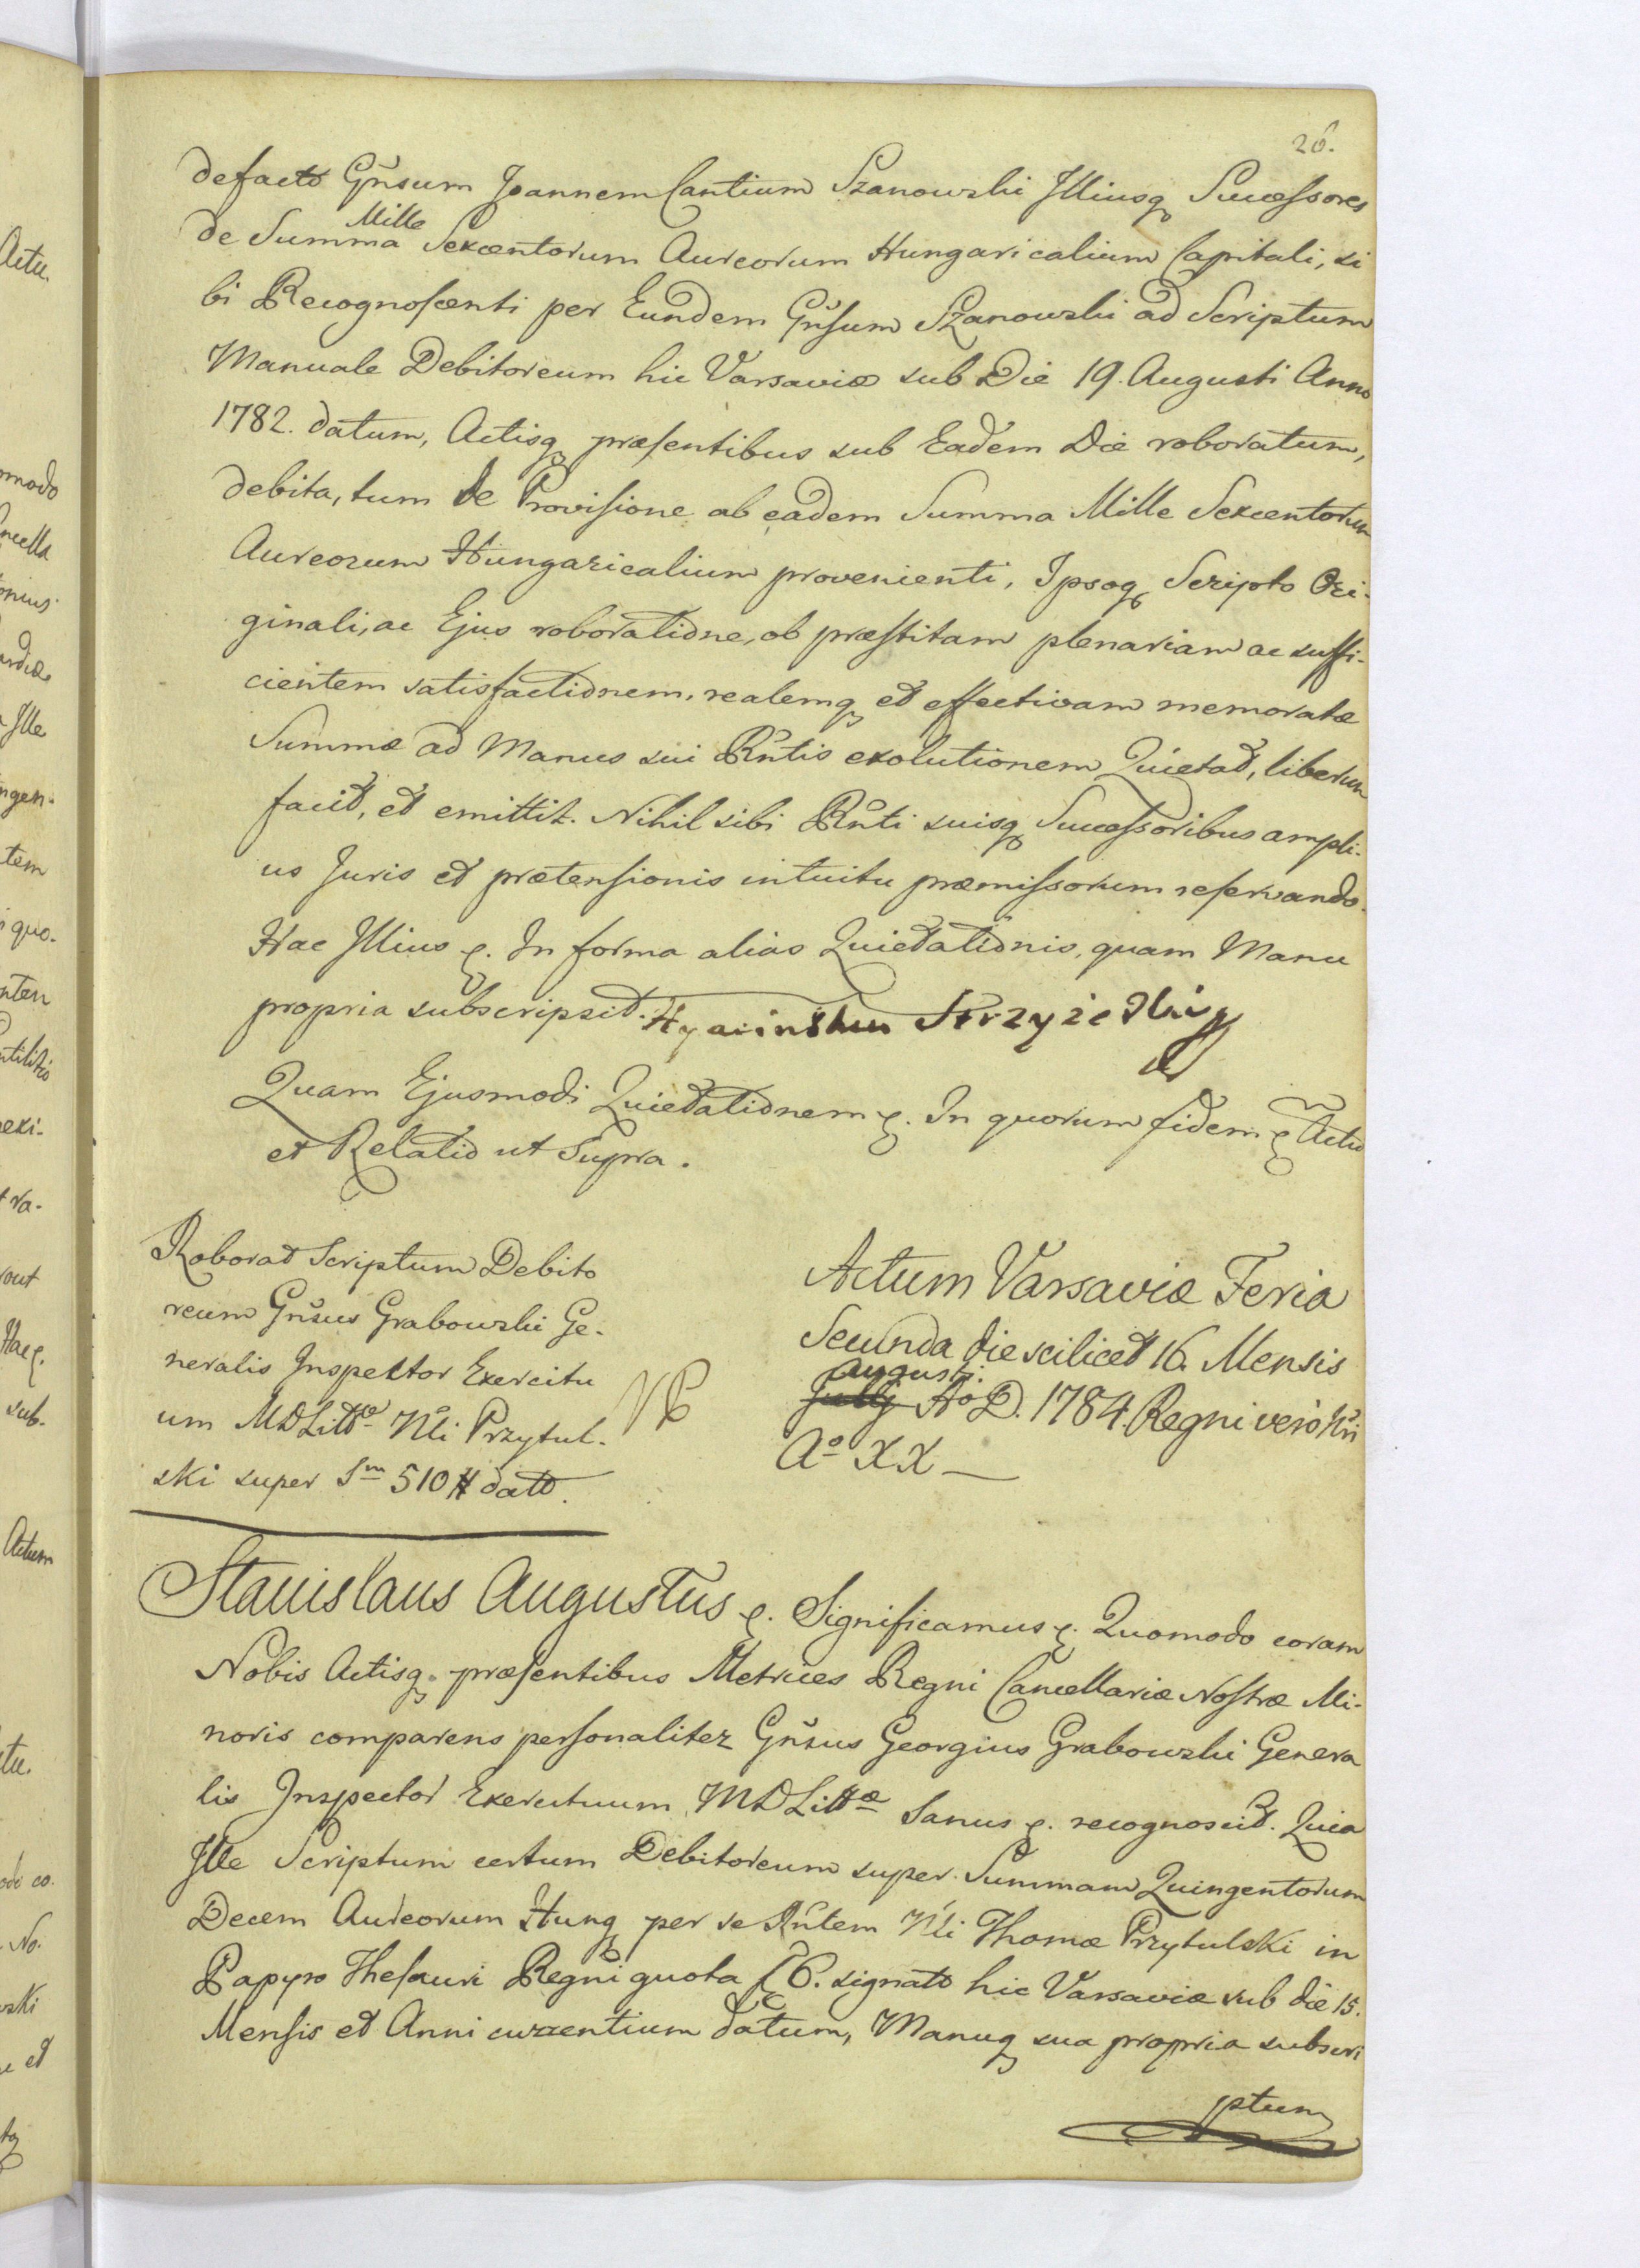 26.
defacto Gñsum Joannem Cantium Szanowski Illiusq Successores
de Summa Mille Sexcentorum Aureorum Hungaricalium Capitali, si
bi Recognoscenti per Eundem Gñsum Szanowski ad Scriptum
Manuale Debitoreum hic Varsaviæ sub Die 19. Augusti Anno
1782. datum, Actisq præsentibus sub Eadem Die roboratum,
debita, tum de Provisione ab eadem Summa Mille Sexcentorum
Aureorum Hungaricalium provenienti, Ipsoq Scripto Ori-
ginali, ac Ejus roboratione, ob præstitam plenariam ac suffi-
cientem satisfactionem, realemq et effectivam memoratæ
Summæ ad Manus sui Rñtis exolutionem Quietat, liberum
facit, et emittit. Nihil sibi Rñti suisq Successoribus ampli-
us Juris et prætensionis intuitu præmissorum reservando.
Hac Illius ę. In forma alias Quietationis, quam Manu
propria subscripsit. Hyacinthus
Quam Ejusmodi Quietationem ę. In quorum fidem ę Actũ
et Relatio ut Supra.
Roborat Scriptum Debito
reum Gñsus Grabowski Ge-
neralis Inspektor Exercitu
um MDLittæ Nli Przytul-
ski super Sm 510 # dato.
Actum Varsaviæ Feria
Secunda die scilicet 16. Mensis
Augusti
July Ao D. 1784. Regni vero Nri
Ao XX
Stanislaus Augustus ę. Significamus ę. Quomodo coram
Nobis Actisq præsentibus Metrices Regni Cancellariæ Nostræ Mi-
noris comparens personaliter Gñsus Georgius Grabowski Genera
lis Inspector Exercituum MDLittæ Sanus ę. recognoscit. Quia
Ille Scriptum certum Debitoreum super Summam Quingentorum
Decem Aureorum Hung per se Rñtem Nli Thomæ Przytulski in
Papyro Thesauri Regni quota 6. signato hic Varsaviæ sub die 15.
Mensis et Anni currentium datum, Manuq sua propria subscri
ptum